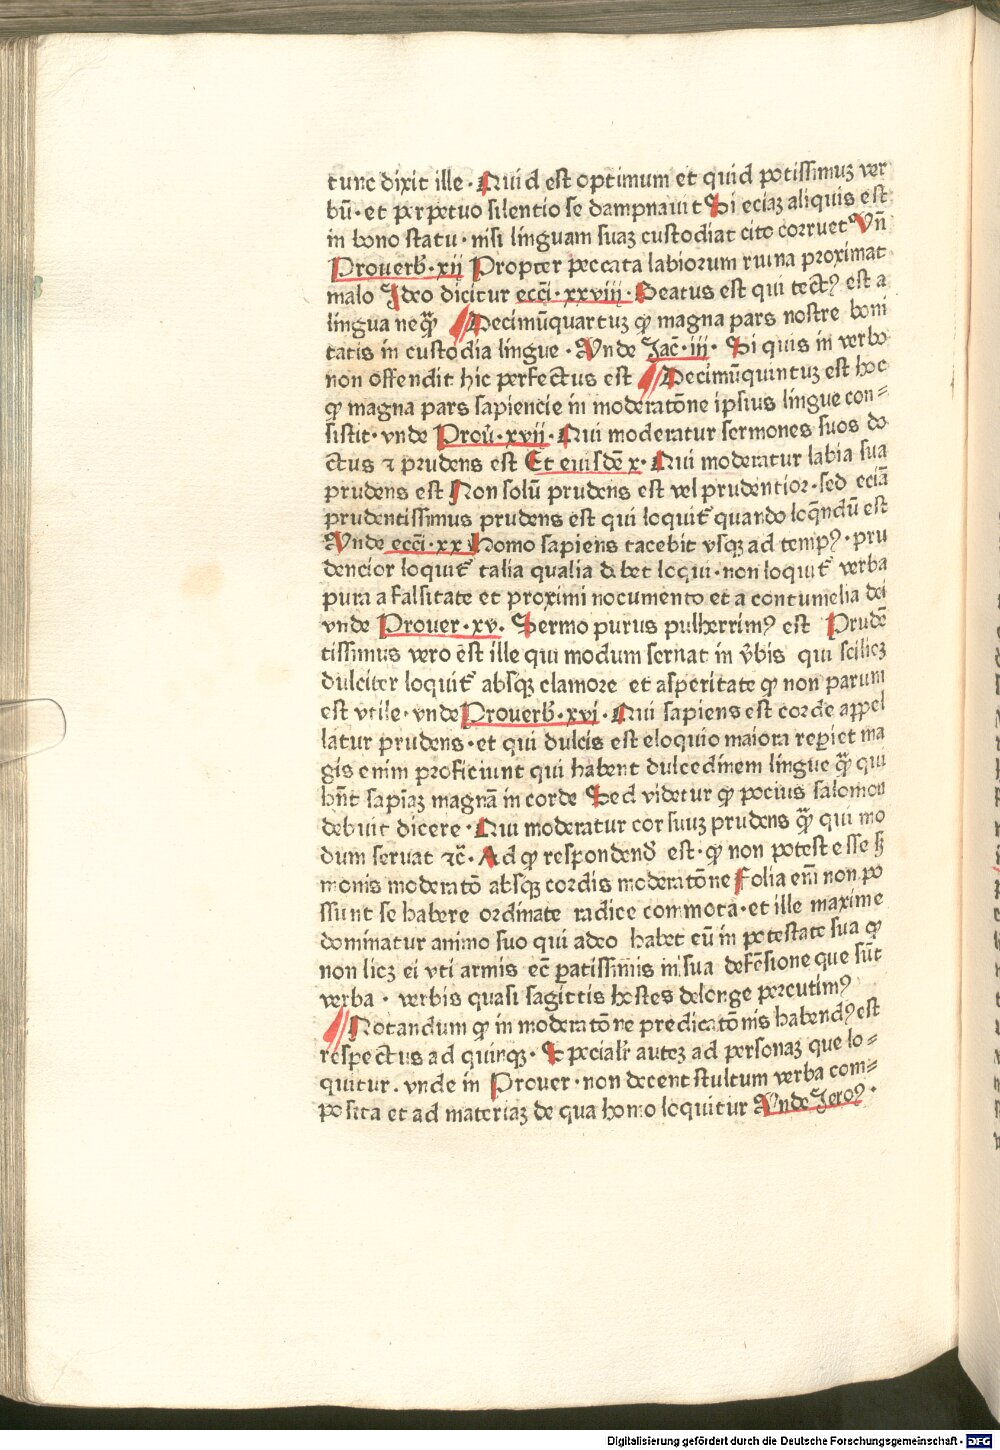 tunc dixit ille · Quid est optimum et quid potissimuz ver
bū · et perpetuo silentio se dampnauit Si eciaz aliquis est
in bono statu · nisi linguam suaz custodiat cito corruet Vn̄
Prouerb̄ · xij Propter peccata labiorum ruina proximat
malo Ideo dicitur eccī · xxviij · Beatus est qui tectꝰ est a
lingua neq̄ꝫ Decimūquartuz ꝙ magna pars nostre boni
tatis in custodia lingue · Vnde Jac̄ · iij · Si quis in verbo
non offendit hic perfectus est Decimūquintuz est hoc
ꝙ magna pars sapiencie in moderatōne ipsius lingue con⸗
sistit · vnde Prou̇ · xvij · Qui moderatur sermones suos do
ctus ⁊ prudens est Et eiusdē x · Qui moderatur labia sua
prudens est Non solū prudens est vel prudentior · sed eciā
prudentissimus prudens est qui loquit᷑ quando loq̄ndū est
Vnde eccī · xx Homo sapiens tacebit vsqꝫ ad tempꝰ · pru
dencior loquit᷑ talia qualia debet loqui · non loquit᷑ verba
pura a falsitate et proximi nocumento et a contumelia dei
vnde Prouer · xv · Sermo purus pulherrimꝰ est Prudē
tissimus vero est ille qui modum seruat in v̄bis qui scilicꝫ
dulciter loquit᷑ absqꝫ clamore et asperitate ꝙ non parum
est vtile · vnde Prouerb̄ · xvi · Qui sapiens est corde appel
latur prudens · et qui dulcis est eloquio maiora repiet ma
gis enim proficiunt qui habent dulcedinem lingue q̄ꝫ qui
hn̄t sapiaꝫ magnā in corde Sed videtur ꝙ pocius salomon
debuit dicere · Qui moderatur cor suuz prudens q̄ꝫ qui mo
dum seruat ⁊c̄ · Ad ꝙ respondend̄ est · ꝙ non potest esse s̄
monis moderatō absqꝫ cordis moderatōne Folia em̄ non po
ssunt se habere ordinate radice commota · et ille maxime
dominatur animo suo qui adeo habet eū in potestate sua ꝙ
non licꝫ ei vti armis ec̄ patissimis in sua defēsione que sūt
verba · verbis quasi sagittis hostes delonge percutimꝰ
Notandum ꝙ in moderatōne predicatōnis habendꝰ est
respectus ad quinqꝫ · Specialr̄ autez ad personaꝫ que lo⸗
quitur · vnde in Prouer · non decent stultum verba com⸗
posita et ad materiaꝫ de qua homo loquitur Vnde Jeroꝰ ·
Digitalisierung gefördert durch die Deutsche Forschungsgemeinschaft - DFG